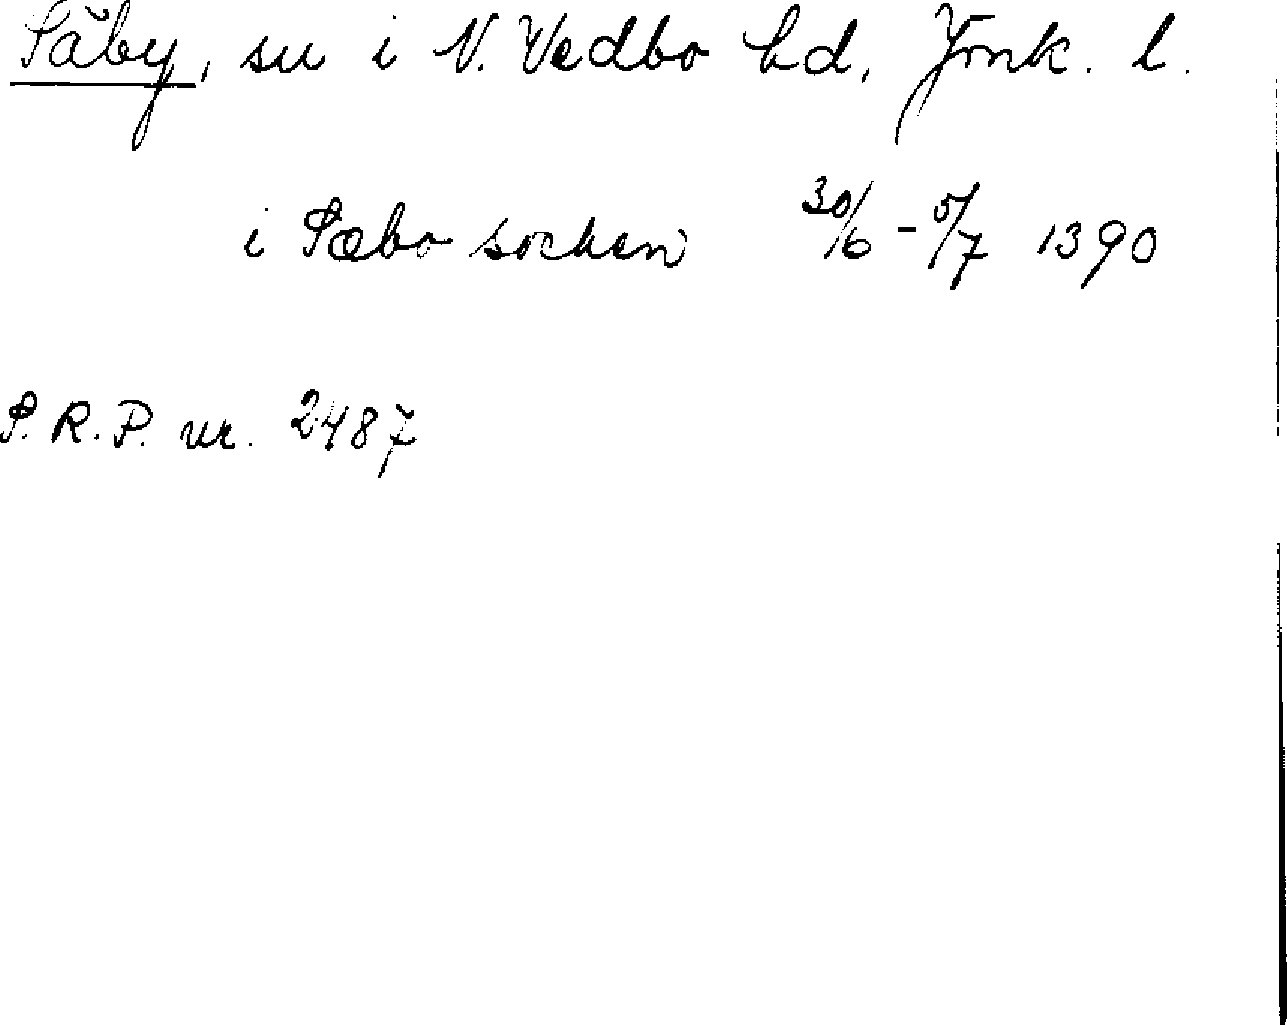 Säby, sn i N. Vedbo hd, Jönk. l.
i Sæbo sochen 30/6 - 5/7 1390
S.R.P. nr. 2487